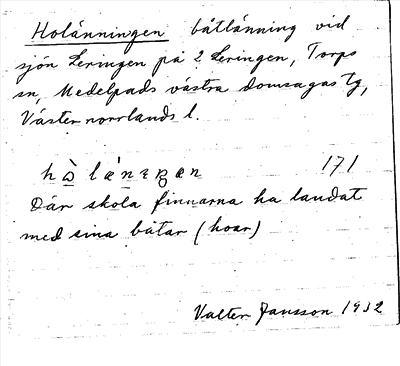 Holänningen båtlänning vid
sjön Leringen på 2 Leringen, Torps
sn, Medelpads västra domsagas tg,
Västernorrlands l.
171
Där skola finnarna ha landat
med sina båtar (hoar)
Valter Jansson 1932